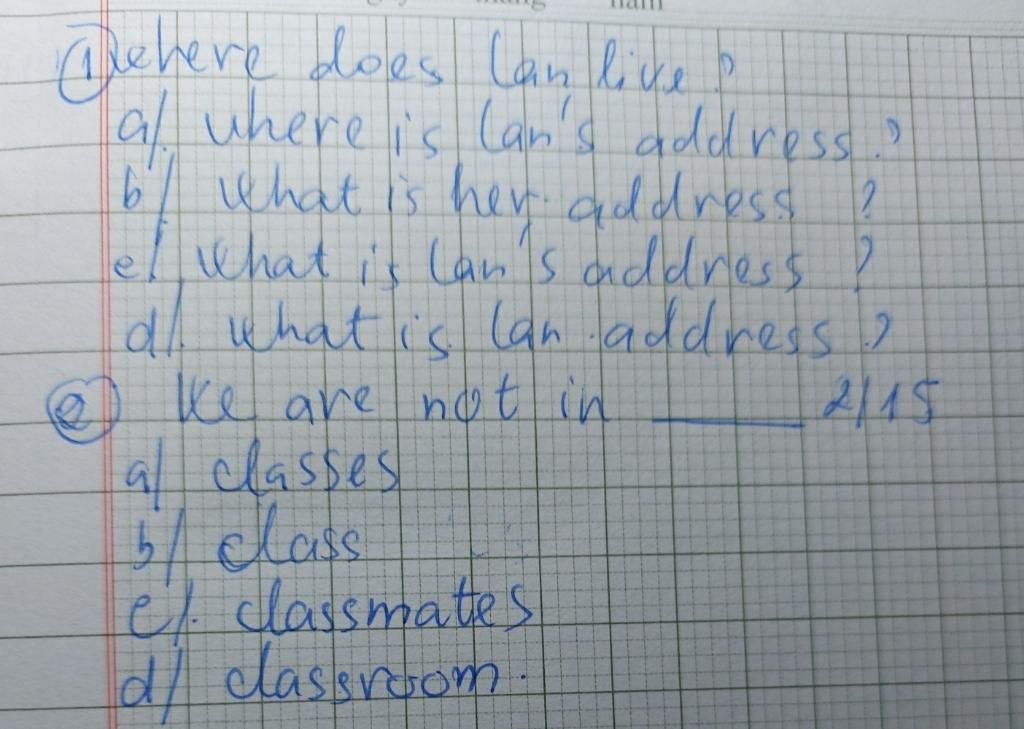 ① Where does Lan live?
a/. where is Lan's address?
b/. What is her address?
c/. What is Lan's address?
d/. What is Lan address?
② We are not in _____ 2/15
a/ classes
b/ class
c/. classmates
d/ classroom.